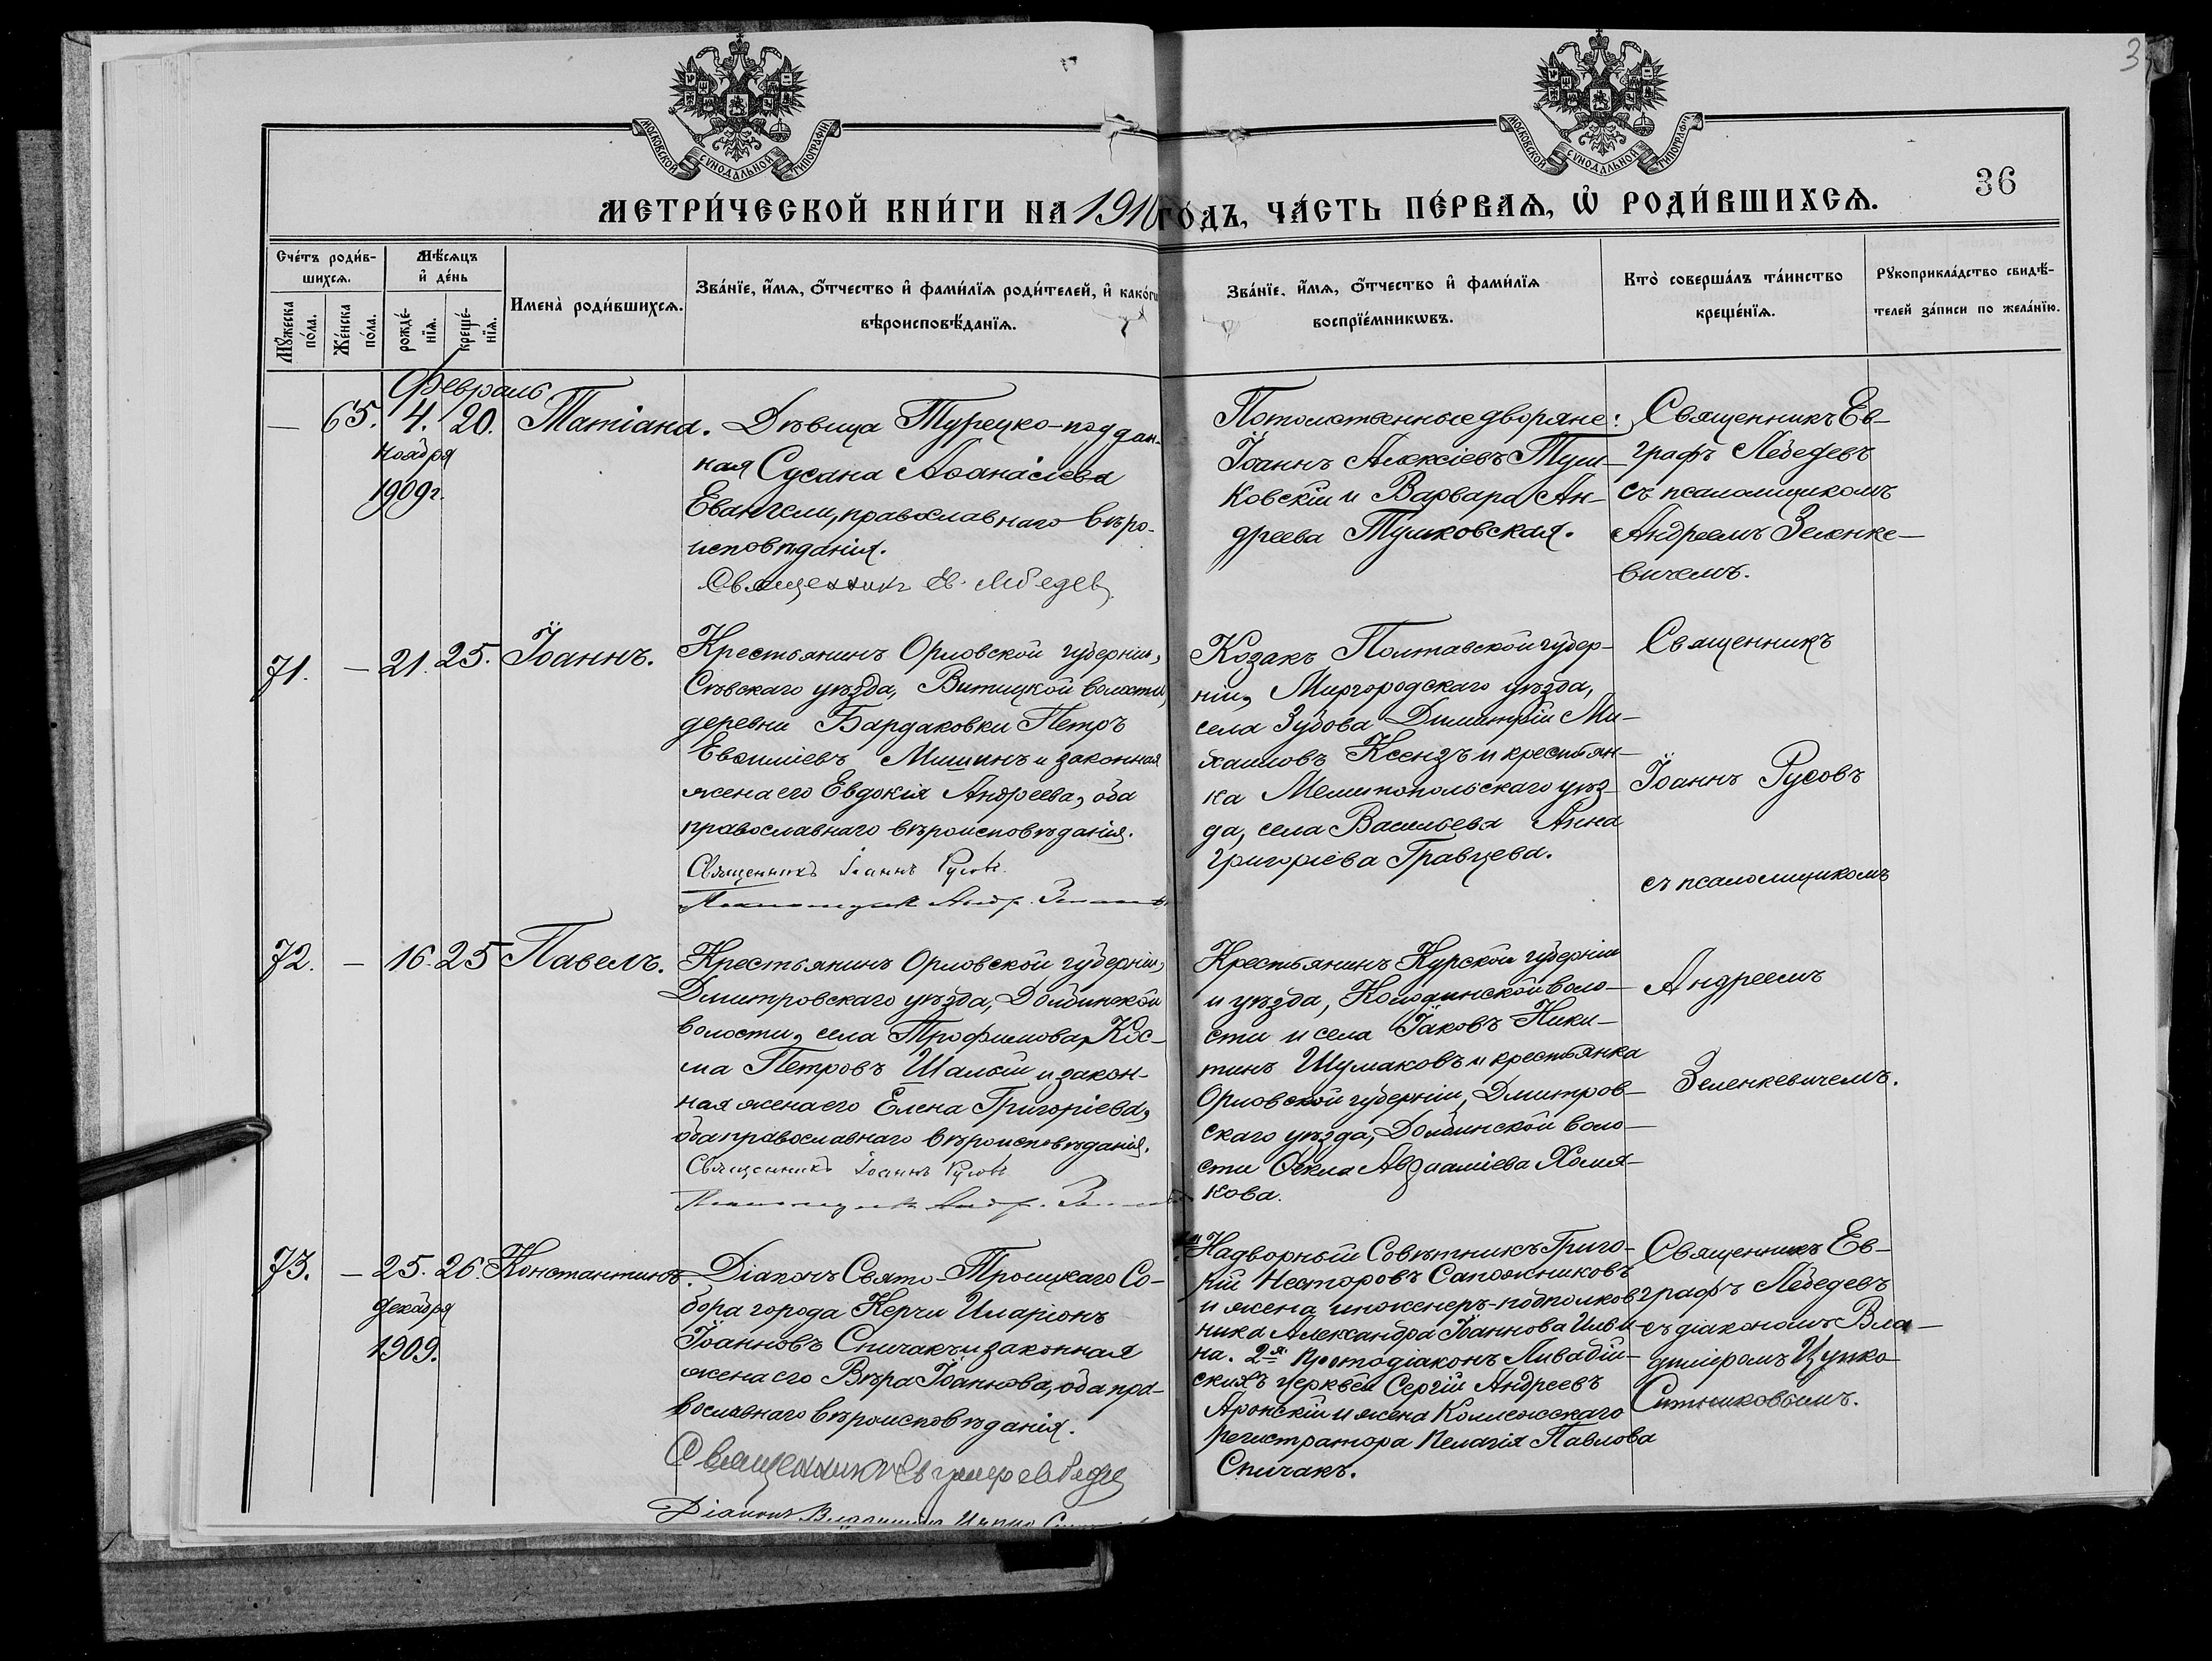 3
МОСКОВСКОЙ СѴНОДАЛЬНОЙ ТИПОГРАФІИ
МОСКОВСКОЙ СѴНОДАЛЬНОЙ ТИПОГРАФІИ
36
МЕТРИ́ЧЕСКОЙ КНИ́ГИ НА 1910 ГО́ДЪ, ЧА́СТЬ ПЕ́РВАѦ, Ѡ РОДИ́ВШИХСѦ.
Сче́тъ роди́в-
шихсѧ.
Мꙋ́жеска по́ла.
Же́нска по́ла.
Мѣ́сѧцъ
и҆ де́нь
рожде́-
нїѧ.
креще́-
нїѧ.
Имена̀ роди́вшихсѧ.
Зва́нїе, и҆́мѧ, о҆́тчество и҆ фами́лїѧ роди́телей, и҆ како́гѡ
вѣроисповѣ́данїѧ.
Зва́нїе, и҆́мѧ, о҆́тчество и҆ фами́лїѧ
воспрїе́мникѡвъ.
Кто̀ соверша́лъ та́инство
креще́нїѧ.
Рꙋкоприкла́дство свидѣ́-
телей за́писи по жела́нїю.
Февраль
— 65. 4. 20. Татіана.
Ноября
1909 г.
Дѣвица Турецко-поддан-
ная Сусана Аѳанасіева
Евангели, православнаго вѣро-
исповѣданія.
Священникъ Ев. Лебедев
Потомственные дворяне:
Іоаннъ Алексіевъ Туш-
ковскій и Варвара Ан-
дреева Тушковская.
Священникъ Ев-
графъ Лебедевъ
съ псаломщикомъ
Андреемъ Зеленке-
вичемъ.
71. — 21. 25. Іоаннъ.
Крестьянинъ Орловской губерніи,
Сѣвскаго уѣзда, Витицкой волости,
деревни Бардаковки Петръ
Евѳиміевъ Мишинъ и законная
жена его Евдокія Андреева, оба
православнаго вѣроисповѣданія.
Священникъ Іоаннъ Русовъ.
Псаломщикъ Андр.
Козакъ Полтавской губер-
ніи, Миргородскаго уѣзда,
села Зубова Димитрій Ми-
хаиловъ Ксензъ и крестьян-
ка Мелитопольскаго уѣз-
да, села Васильева Анна
Григоріева Гравцева.
Священникъ
Іоаннъ Русовъ
съ псаломщикомъ
72. — 16. 25 Павелъ.
Крестьянинъ Орловской губерніи,
Дмитровскаго уѣзда, Долбинской
волости, села Трофимова, Кос-
ма Петровъ Шалый и закон-
ная жена его Елена Григоріева,
оба православнаго вѣроисповѣданія.
Священникъ Іоаннъ Русовъ
Псаломщикъ Андр.
Крестьянинъ Курской губерніи
и уѣзда, Колодинской воло-
сти и села Іаковъ Ники-
тинъ Шумаковъ и крестьянка
Орловской губерніи, Дмитров-
скаго уѣзда, Долбинской воло-
сти Ѳекла Авраамiева Хомя-
кова.
Андреемъ
Зеленкевичемъ.
73. — 25. 26. Константинъ.
Декабря
1909.
Діаконъ Свято-Троицкаго Со-
бора города Керчи Иларіонъ
Іоанновъ Спичакъ и законная
жена его Вѣра Іоаннова, оба пра-
вославнаго вѣроисповѣданія.
Священникъ Лебедев
Діаконъ Владиміръ Цупко
Надворный Совѣтникъ Григо-
рій Несторовъ Сапожниковъ
и жена инженеръ-подполков
ника Александра Іоаннова Ильи-
на. 2я Протодіаконъ Ливадій-
скихъ церквей Сергій Андреевъ
Аронскій и жена Коллежскаго
регистратора Пелагія Павлова
Спичакъ.
Священникъ Ев-
графъ Лебедевъ
съ діакономъ Вла-
диміромъ Цупко-
Ситниковымъ.